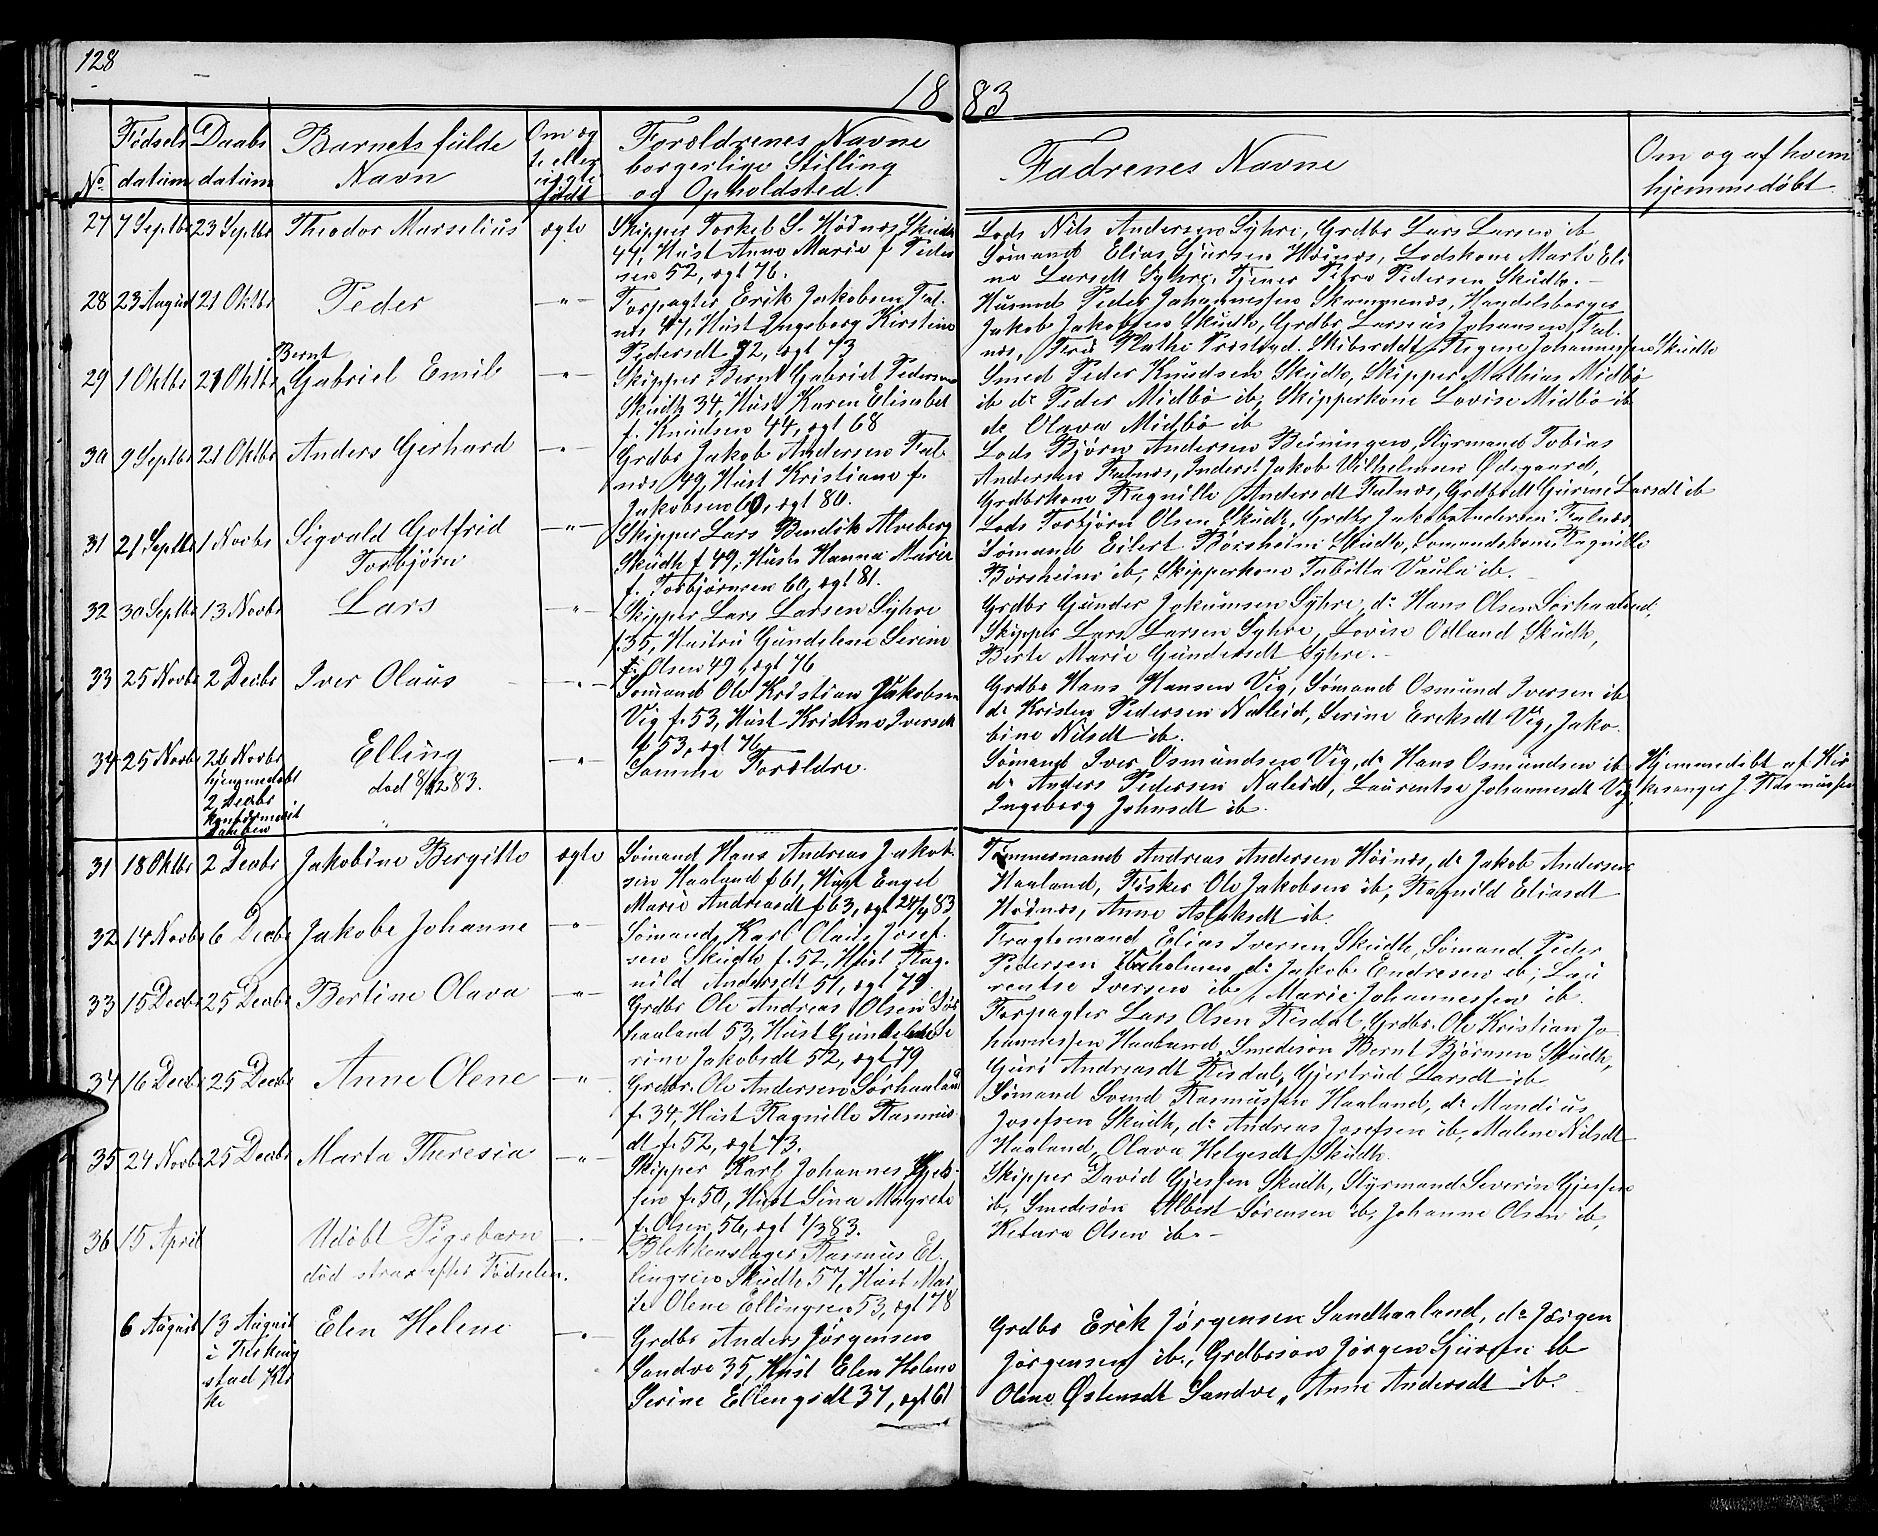 128
18 83
No
Fødsels
datum
Daabs
datum
Barnets fulde
Navn
Om æg
te eller
uægte
født
Forældrenes Navne
borgerlige Stilling
og Opholdsted.
Fadrenes Navne
Om og af hvem
hjemmedøbt
27 7 Septbr 23 Septbr Theodor Marselius ægte
Skipper Torkel S. Høines Skudh
47, Hust Anne Marie f Peder
sen 52, ægt 76.
Lods Nils Andersen Syhre, Grdbr Lars Larsen ib
Sømand Elias Sjursen Høines, Lodskone Marte Eli
ne Larsdt Syhre, Tjener Petra Pedersen Skudh. -
28 23 August 21 Oktbr Peder -"-
Forpagter Erik Jakobsen Fal-
næs 47, Hust Ingeborg Kirstine
Pedersdt 42, ægt 73
Husmd Peder Johannessen Skammenæs, Handelsborger
Jakob Jakobsen Skudh, Grdbr Larseus Johansen Fal-
næs, Kathe Skudh
29 1 Oktbr 21 Oktbr Bernt
Gabriel Emil -"-
Skipper Bernt Gabriel Pedersen
Skudh 34, Hust Karen Elisabet
f. Knudsen 44, ægt 68
Smed Peder Knudsen Skudh, Skipper Mathias Midbø
ib do Peder Midbø ib, Skipperkone Lovise Midbø ib
do Olava Midbø ib
30 9 Septbr 21 Oktbr Anders Gerhard -"-
Grdbr Jakob Andersen Fal-
næs 49, Hust Kristiane f.
Jakobsen 60, ægt 80.
Lods Bjørn Andersen Beiningen, Styrmand Tobias
Andersen Falnæs, Inderst Jakob Vilhelmsen Ødegaard,
Grdbrkone Ragnille Andersdt Falnæs, Grdbrdt Gurine Larsdt ib
31 21 Septbr 1 Novbr Sigvald Gotfrid
Torbjørn -"-
Skipper Lars Bendik Alveberg
Skudh f 49, Hust Hanna Marie
f. Torbjørnsen 60, ægt 81.
Lods Torbjørn Olsen Skudh, Grdbr Jakob Andersen Falnæs
Sømand Eilert Børsheim Skudh, Sømandskone Ragnille
Børsheim ib, Skipperkone Tabitta Vaula ib. -
32 30 Septbr 13 Novbr Lars -"-
Skipper Lars Larsen Syhre
f 35, Hustru Gundelene Serine
f. Olsen 49, ægt 76
Grdbr Gunder Jokumsen Syhre, do Hans Olsen Sørhaaland,
Skipper Lars Larsen Syhre, Lovise Odland Skudh,
Berte Marie Gundersdt Syhre. -
33 25 Novbr 2 Decbr Iver Olaus -"-
Sømand Ole Kristian Jakobsen
Vig f. 53, Hust Kristine Iversdt
f 53, ægt 76
Grdbr Hans Hansen Vig, Sømand Osmund Iversen ib
do Kristen Pedersen Naleid, Serine Ereksdt Vig, Jako-
bine Nilsdt ib.
34 25 Novbr 26 Novbr
hjemmedøbt
2 Decbr
konfirmeret
Daaben
Elling
død 8/12 83. -"-
Samme Forældre.
Sømand Iver Osmundsen Vig, do Hans Osmundsen ib
do Anders Pedersen Naleid, Laurentse Johannesdt Vig,
Ingeborg Johnsdt ib.
Hjemmedøbt af Kir
kesanger J. Rasmussen
31 18 Oktbr 2 Decbr Jakobine Bergitte ægte
Sømand Hans Andreas Jakob-
sen Haaland f 61, Hust Engel
Marie Andreasdt f 63, ægt 24/4 83
Tømmermand Andreas Andersen Høines, do Jakob Andersen
Haaland, Fisker Ole Jakobsen ib, Ragnild Eliasdt
Høines, Anne Aslaksdt ib.
32 14 Novbr 6 Decbr Jakobe Johanne -"-
Sømand Karl Olaus Josef-
sen Skudh f. 52, Hust Rag-
nild Andersdt 51, ægt 79.
Fragtemand Elias Iversen Skudh, Sømand Peder
Pedersen do Jakob Endresen ib, Lau
rentse Iversen ib, Marie Johannessen ib.
33 15 Decbr 25 Decbr Bertine Olava -"-
Grdbr Ole Andreas Olsen Sør
haaland 53, Hust Gundelene Se
rine Jakobsdt 52, ægt 79
Forpagter Lars Olsen Risdal, Grdbr. Ole Kristian Jo
hannessen Haaland, Smedesøn Bernt Bjørnsen Skudh,
Guri Andreasdt Risdal, Gjertrud Larsdt ib
34 16 Decbr 25 Decbr Anne Olene -"-
Grdbr. Ole Andersen Sørhaaland
f. 34, Hust Ragnille Rasmus-
dt f. 52, ægt 73.
Sømand Svend Rasmussen Haaland, do Mandius
Josefsen Skudh, do Andreas Josefsen ib, Malene Nilsdt
Haaland, Olava Helgesdt Skudh.
35 24 Novbr 25 Decbr Marta Theresia -"-
Skipper Karl Johannes Gjes-
sen f. 50, Hust Sina Magrete
f. Olsen, 56, ægt 1/3 83.
Skipper David Gjessen Skudh, Styrmand Severin Gjessen
ib, Smedesøn Albert Sørensen ib, Johanne Olsen ib,
Ketura Olsen ib. -
36 15 April Udøbt Pigebarn
død strax efter Fødselen. -"-
Blekkenslager Rasmus El-
lingsen Skudh 57, Hust Mar
te Olene Ellingsen 53, ægt 78
6 August 13 August
i Ferking
stad Kir
ke
Elen Helene -"-
Grdbr Anders Jørgensen
Sandve 35, Hust Elen Helene
Serine Ellengsdt 37, ægt 61
Grdbr Erik Jørgensen Sandhaaland, do Jørgen
Jørgensen ib., Grdbrsøn Jørgen Sjursen ib
Olene Østensdt Sandve, Anne Andersdt ib.